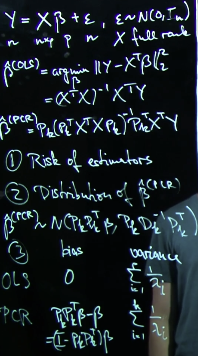 Y = Xβ + ε, ε ~ N(0, Iₙ)
n n×p p n X full rank
β̂^(OLS) = argmin ‖Y - X^Tβ‖₂²
= (X^T X)^{-1} X^T Y
β̂^(PCR) = P_k (P_k^T X^T X P_k)^{-1} P_k^T X^T Y
① Risk of estimators
② Distribution of β̂^(PCR)
β̂^(PCR) ~ N(P_k P_k^T β, P_k D_k^{-1} P_k^T)
③ bias variance
OLS 0 Σ_{i=1}^p 1/λ_i
PCR P_k P_k^T β - β Σ_{i=1}^k 1/λ_i
= (I - P_k P_k^T) β